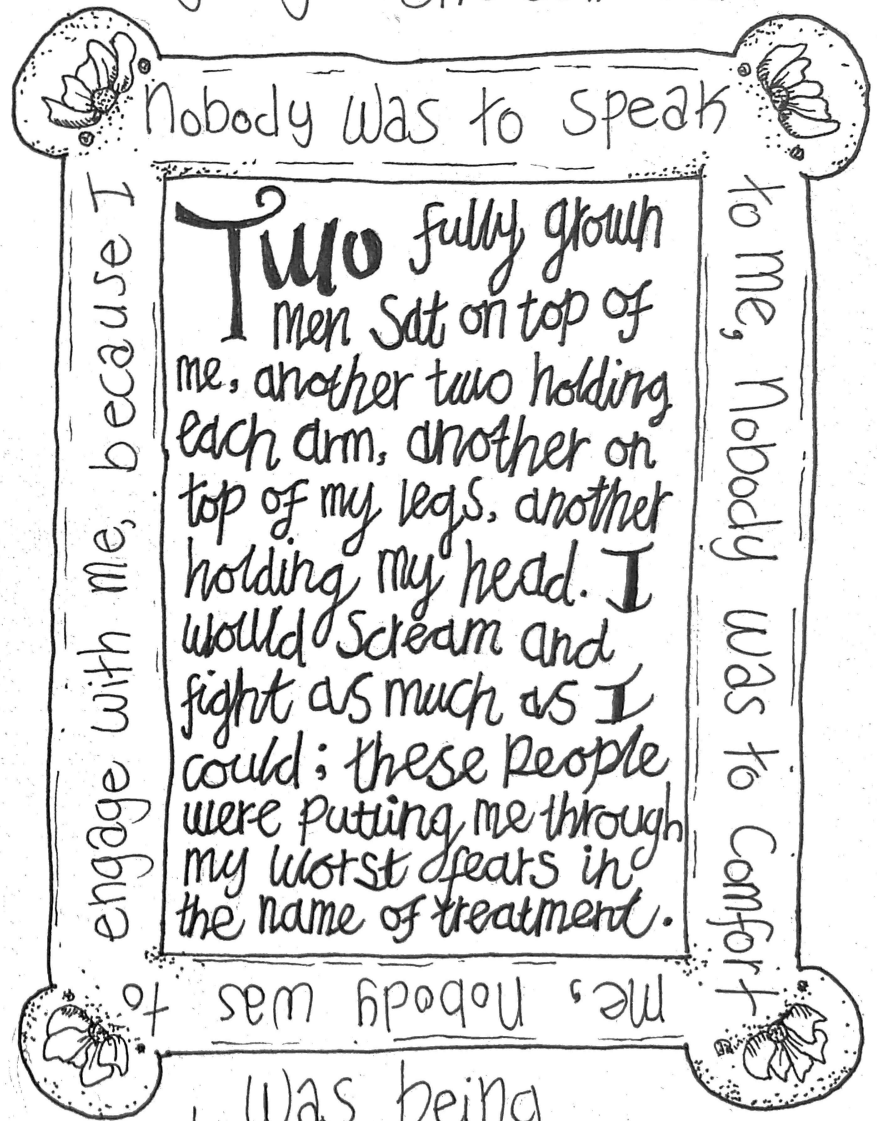 nobody was to speak
to me, nobody was to comfort
me, nobody was to
engage with me, because I
Two fully grown
men sat on top of
me, another two holding
each arm, another on
top of my legs, another
holding my head. I
would scream and
fight as much as I
could; these people
were putting me through
my worst fears in
the name of treatment.
was being